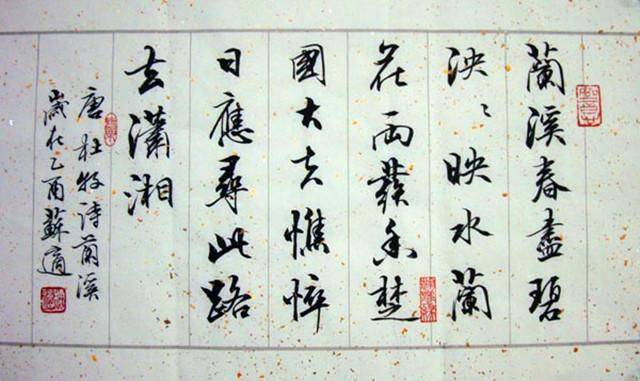 蘭溪春盡碧
泱〻映水蘭
花雨發香楚
國大夫憔悴
日應尋此路
去瀟湘
唐杜牧诗蘭溪
歲在乙酉蘇適